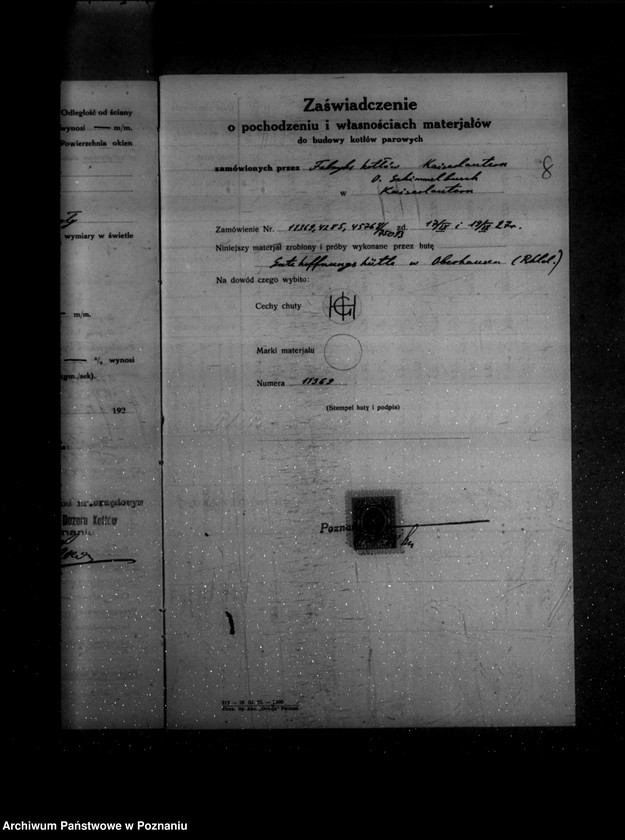 Odległość od ściany
wynosi — m/m.
Powierzchnia okien
wymiary w świetle
m/m.
% wynosi
kgm./sek).
192
Dozoru Kotłów
Zaświadczenie
o pochodzeniu i własnościach materjałów
do budowy kotłów parowych
8
zamówionych przez Fabrykę kotłów Kaiserslautern
O. Schimmelbusch
w Kaiserslautern
Zamówienie Nr. 11369, 4285, 45767 zd. i 27r.
Niniejszy materjał zrobiony i próby wykonane przez hutę
Gutehoffnungshütte w Oberhausen (Rhld.)
Na dowód czego wybito:
Cechy chuty GHH
Marki materjału
Numera 11369
(Stempel huty i podpis)
Poznań